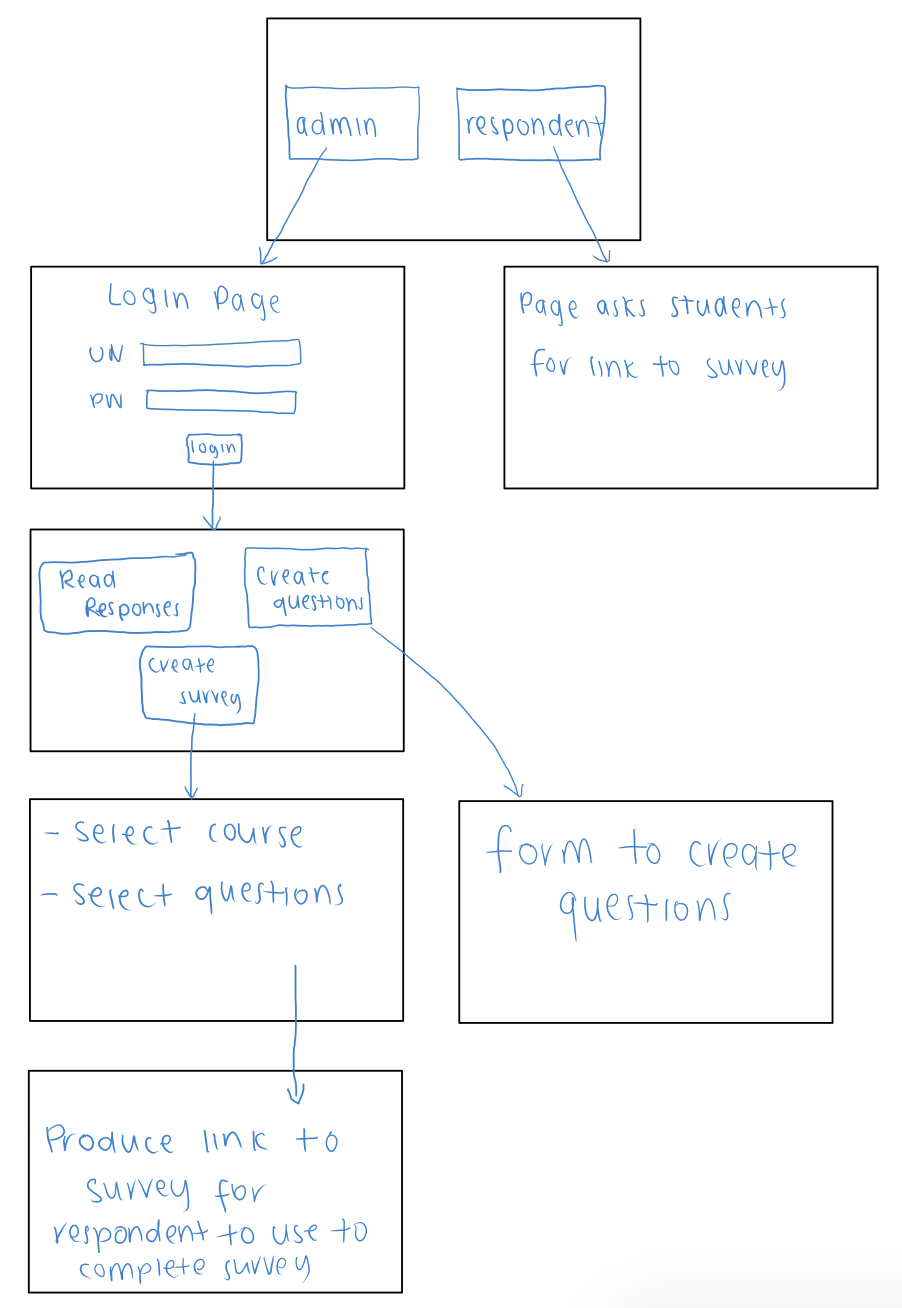 admin
respondent
Login Page
UN
PW
login
Page asks students
for link to survey
Read
Responses
Create
questions
create
survey
- select course
- select questions
form to create
questions
Produce link to
survey for
respondent to use to
complete survey